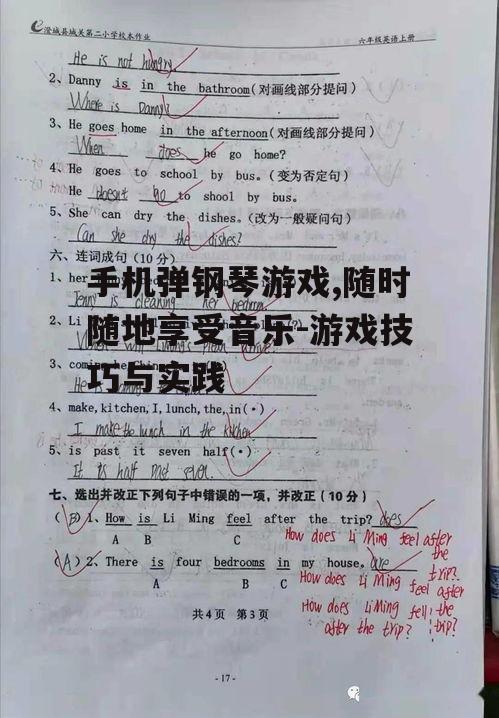 澄城县城关第二小学校本作业 六年级英语上册
He is not hungry
2、Danny is in the bathroom(对画线部分提问)
Where is Danny?
3、He goes home in the afternoon(对画线部分提问)
When does he go home?
4、He goes to school by bus.(变为否定句)
He doesn't go to shool by bus.
5、She can dry the dishes.(改为一般疑问句)
Can she dry the dishes?
六、连词成句(10分)
1、her
Jenny is cleaning her bedroom.
2、Li
手机弹钢琴游戏,随时
随地享受音乐-游戏技
巧与实践
3、
4、make,kitchen,I,lunch,the,in(·)
I make the lunch in the kitchen
5、is past it seven half(·)
It is half past seven.
七、选出并改正下列句子中错误的一项,并改正(10分)
(B)1、How is Li Ming feel after the trip? does
A B C
How does Li Ming feel after the trip?
(A)2、There is four bedrooms in my house. are
A B C
How does Li Ming feel after the trip?
How does Li Ming fell after the trip?
共4页 第3页
-17-